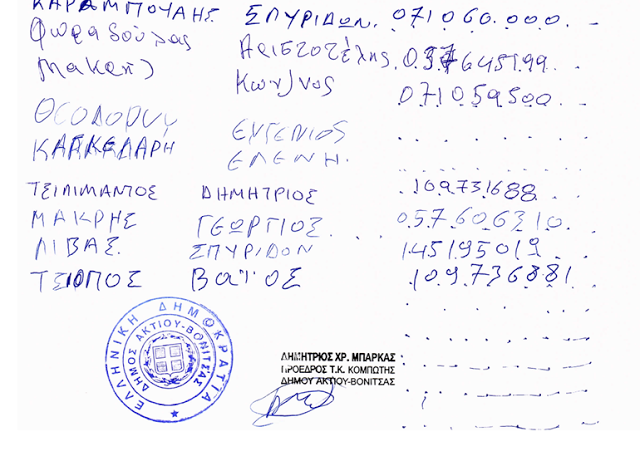 ΚΑΡΑΜΠΟΥΛΗΣ ΣΠΥΡΙΔΩΝ. 071060.000.
Φωραδούλας Αριστοτέλης. 037645199
Μακρή Κων/νος 071059500
ΘΕΟΔΩΡΟΥ ΕΥΓΕΝΙΟΣ
ΕΛΕΝΗ.
ΤΣΙΛΙΜΑΝΤΟΣ ΔΗΜΗΤΡΙΟΣ 109731688
ΜΑΚΡΗΣ ΓΕΩΡΓΙΟΣ. 057606310
ΛΙΒΑΣ. ΣΠΥΡΙΔΩΝ 145195019
ΒΑΪΟΣ 109.736881
ΕΛΛΗΝΙΚΗ ΔΗΜΟΚΡΑΤΙΑ
ΔΗΜΟΣ ΑΚΤΙΟΥ-ΒΟΝΙΤΣΑΣ
ΔΗΜΗΤΡΙΟΣ ΧΡ. ΜΠΑΡΚΑΣ
ΠΡΟΕΔΡΟΣ Τ.Κ. ΚΟΜΠΩΤΗΣ
ΔΗΜΟΥ ΑΚΤΙΟΥ-ΒΟΝΙΤΣΑΣ